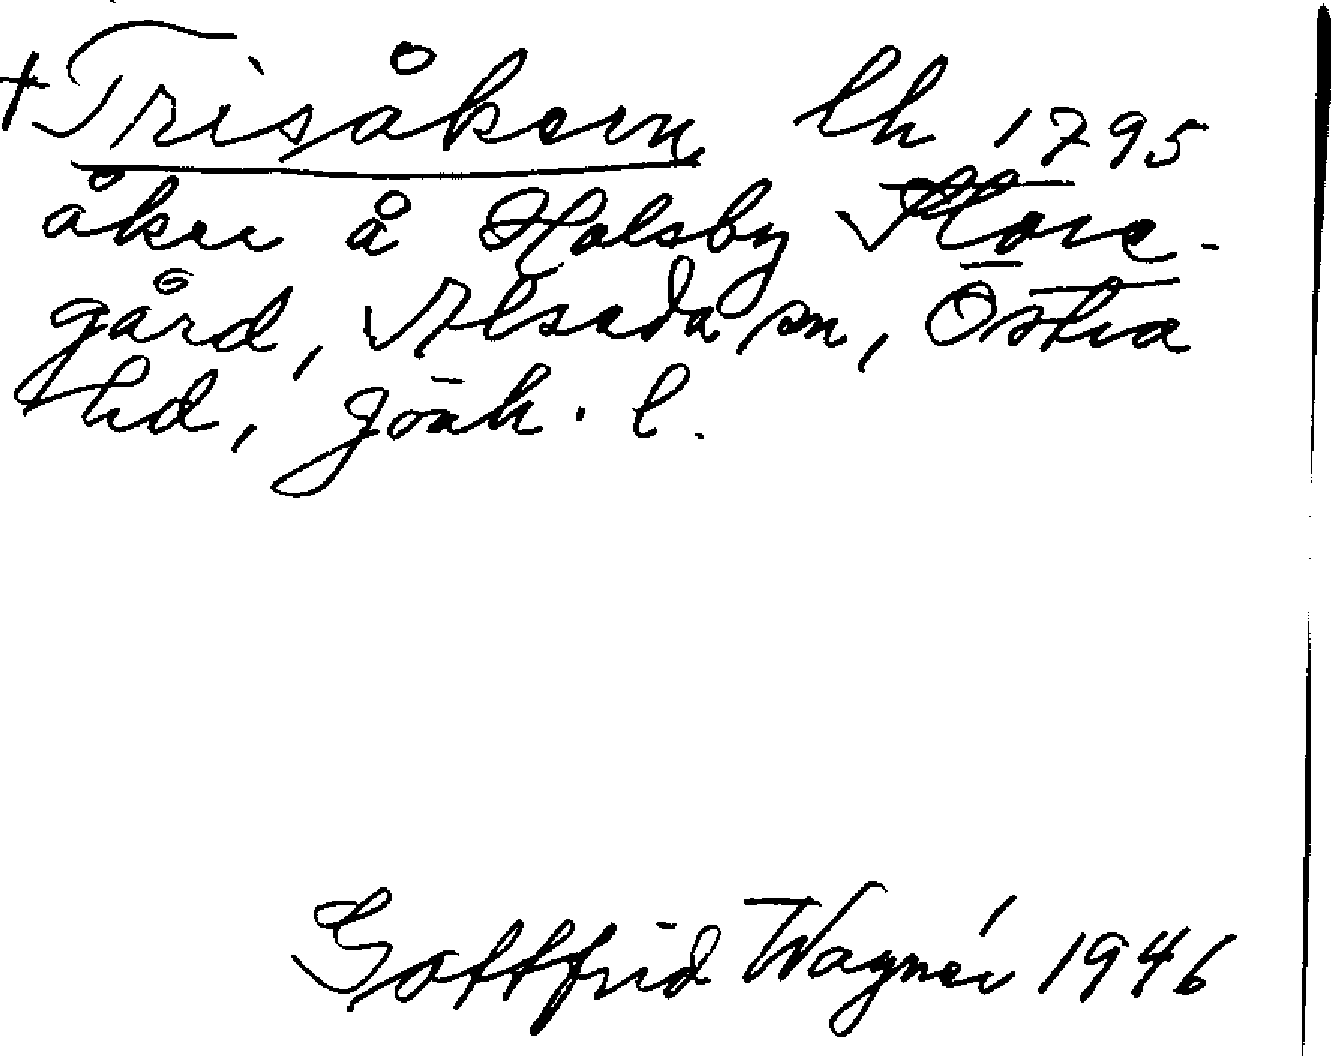 +Trisåkern lh 1795
åker å Holsby Store-
gård, Alseda sn, Östra
hd, Jönk. l.
Gottfrid Wagnér 1946